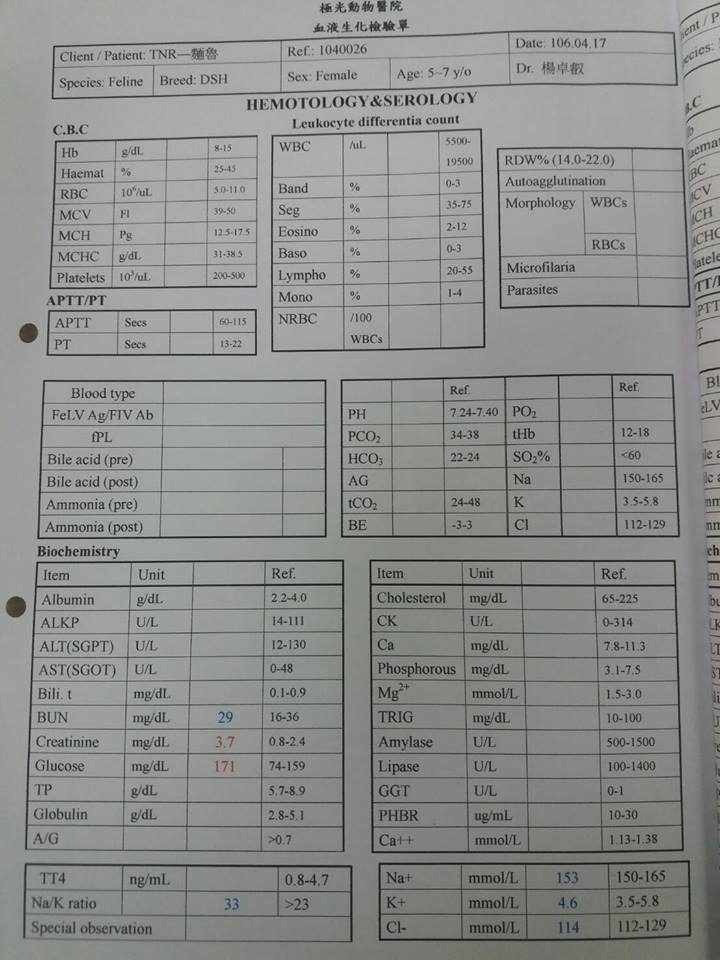 極光動物醫院
血液生化檢驗單
Client / Patient: TNR—麵魯 Ref.: 1040026 Date: 106.04.17
Species: Feline Breed: DSH Sex: Female Age: 5~7 y/o Dr. 楊卓叡
HEMOTOLOGY&SEROLOGY
C.B.C
Hb g/dL 8-15
Haemat % 25-45
RBC 10⁶/uL 5.0-11.0
MCV Fl 39-50
MCH Pg 12.5-17.5
MCHC g/dL 31-38.5
Platelets 10³/uL 200-500
APTT/PT
APTT Secs 60-115
PT Secs 13-22
Leukocyte differentia count
WBC /uL 5500-
19500
Band % 0-3
Seg % 35-75
Eosino % 2-12
Baso % 0-3
Lympho % 20-55
Mono % 1-4
NRBC /100
WBCs
RDW% (14.0-22.0)
Autoagglutination
Morphology WBCs
RBCs
Microfilaria
Parasites
Blood type
FeLV Ag/FIV Ab
fPL
Bile acid (pre)
Bile acid (post)
Ammonia (pre)
Ammonia (post)
Ref. Ref.
PH 7.24-7.40 PO₂
PCO₂ 34-38 tHb 12-18
HCO₃ 22-24 SO₂% <60
AG Na 150-165
tCO₂ 24-48 K 3.5-5.8
BE -3-3 Cl 112-129
Biochemistry
Item Unit Ref.
Albumin g/dL 2.2-4.0
ALKP U/L 14-111
ALT(SGPT) U/L 12-130
AST(SGOT) U/L 0-48
Bili. t mg/dL 0.1-0.9
BUN mg/dL 29 16-36
Creatinine mg/dL 3.7 0.8-2.4
Glucose mg/dL 171 74-159
TP g/dL 5.7-8.9
Globulin g/dL 2.8-5.1
A/G >0.7
Item Unit Ref.
Cholesterol mg/dL 65-225
CK U/L 0-314
Ca mg/dL 7.8-11.3
Phosphorous mg/dL 3.1-7.5
Mg²⁺ mmol/L 1.5-3.0
TRIG mg/dL 10-100
Amylase U/L 500-1500
Lipase U/L 100-1400
GGT U/L 0-1
PHBR ug/mL 10-30
Ca++ mmol/L 1.13-1.38
TT4 ng/mL 0.8-4.7
Na/K ratio 33 >23
Special observation
Na+ mmol/L 153 150-165
K+ mmol/L 4.6 3.5-5.8
Cl- mmol/L 114 112-129